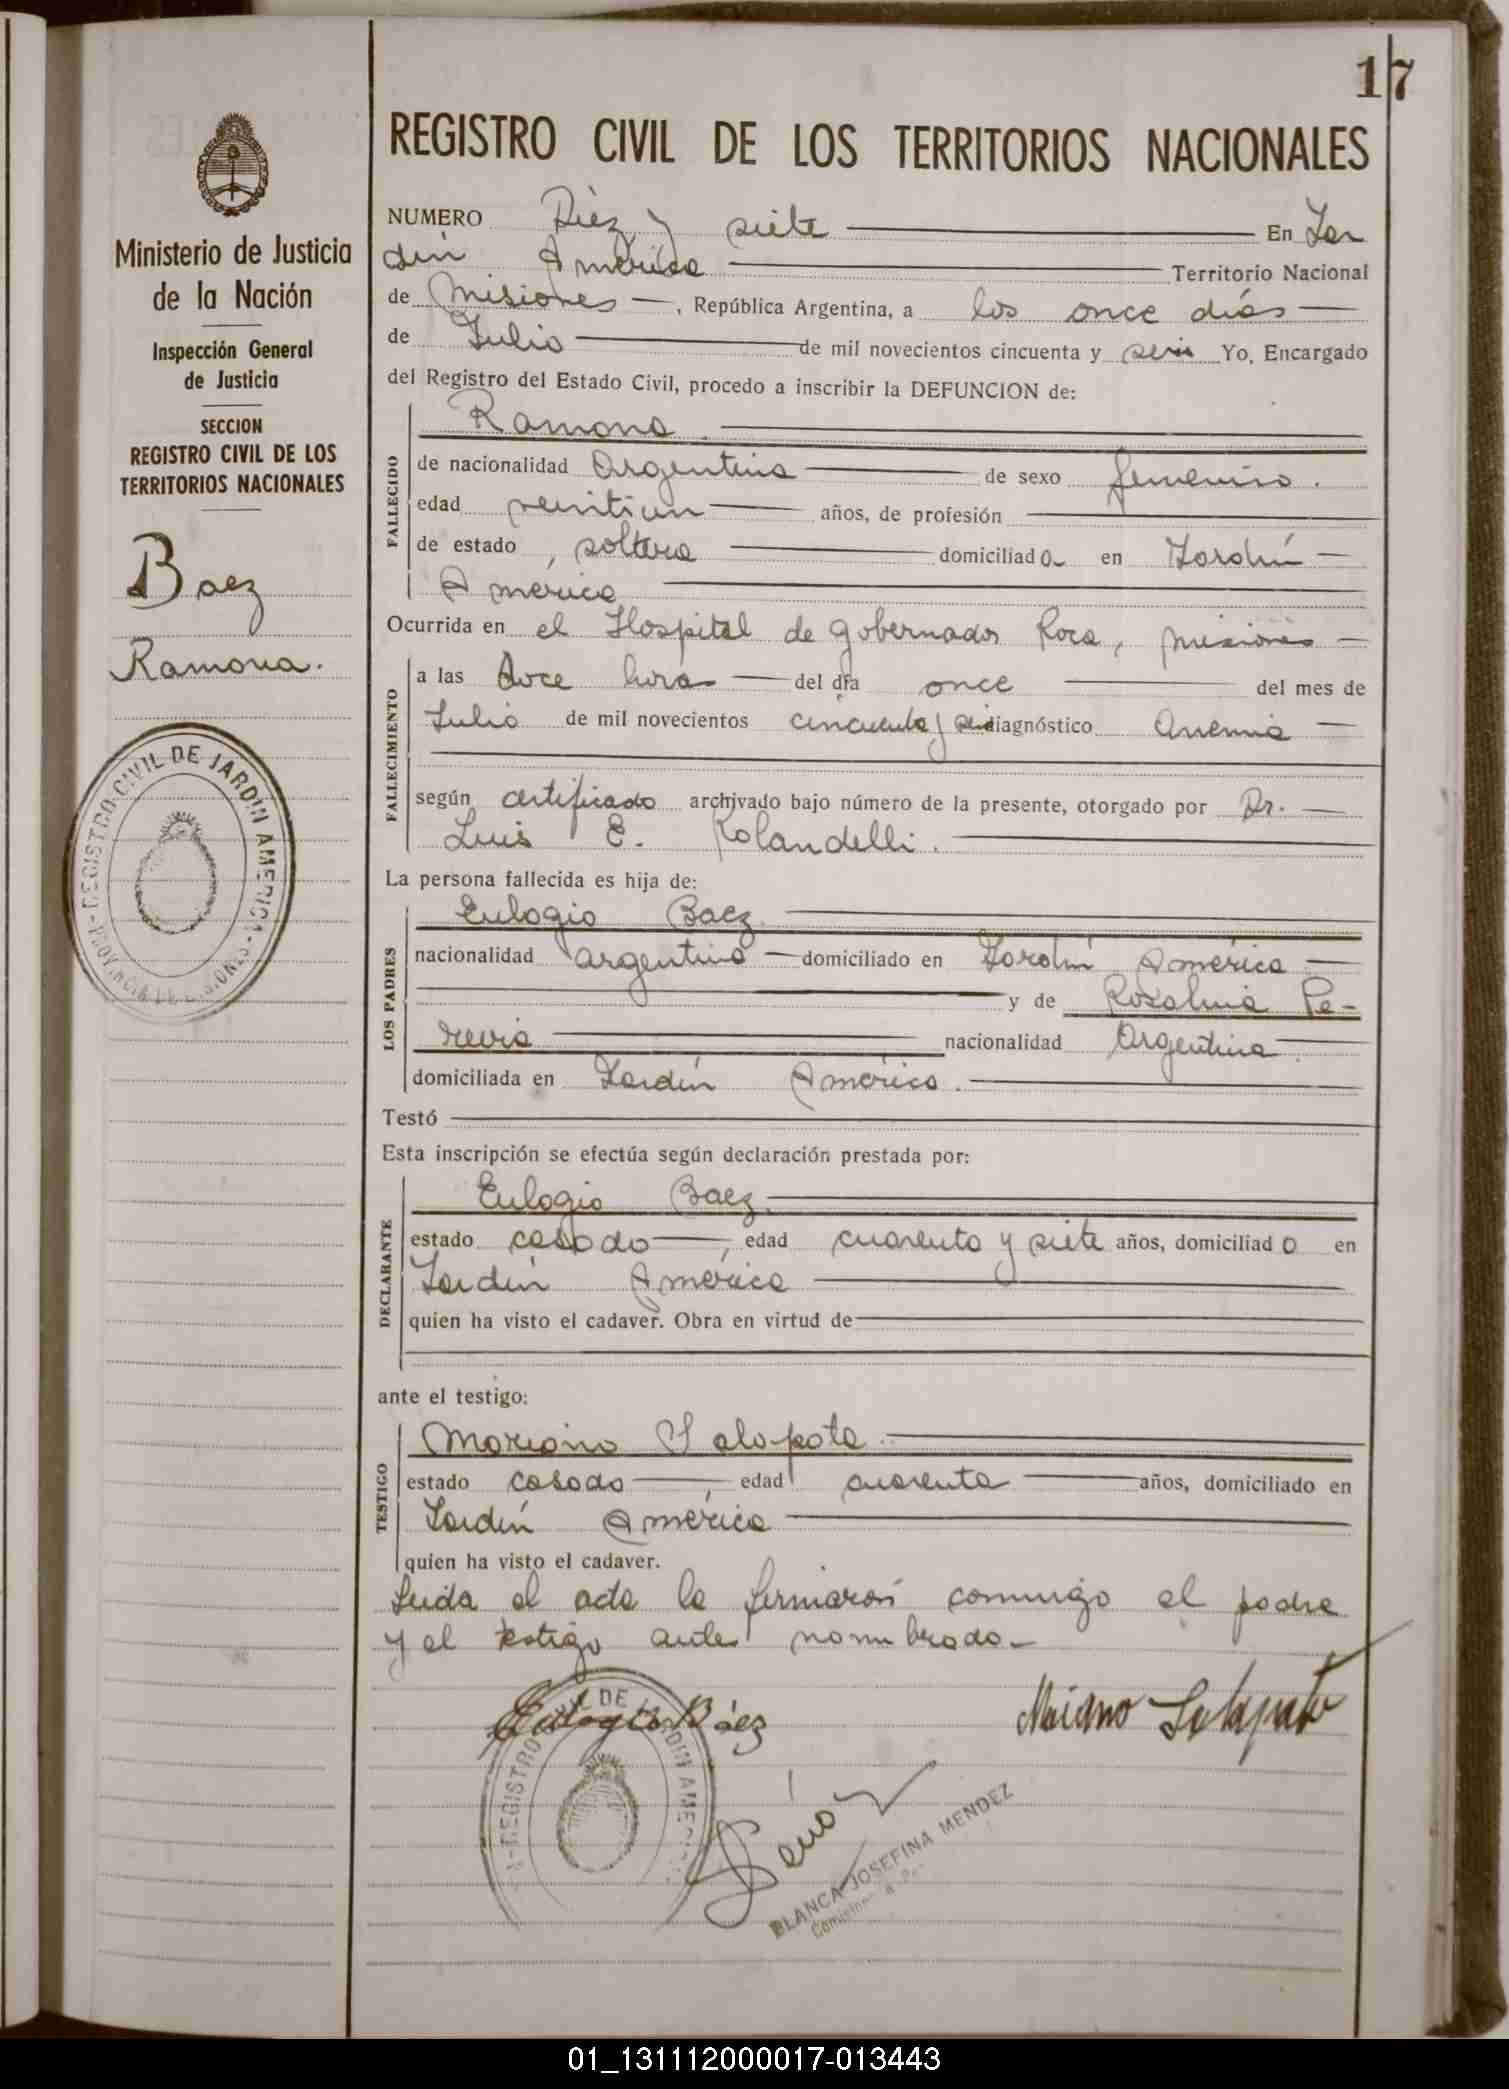 17
REGISTRO CIVIL DE LOS TERRITORIOS NACIONALES
Ministerio de Justicia
de la Nación
Inspección General
de Justicia
SECCION
REGISTRO CIVIL DE LOS
TERRITORIOS NACIONALES
Baez
Ramona.
REGISTRO CIVIL DE JARDIN AMERICA - PROVINCIA DE MISIONES -
NUMERO Diez y siete En Jar
din América Territorio Nacional
de Misiones, República Argentina, a los once días
de Julio de mil novecientos cincuenta y seis Yo, Encargado
del Registro del Estado Civil, procedo a inscribir la DEFUNCION de:
FALLECIDO
Ramona
de nacionalidad Argentina de sexo femenino.
edad veintiun años, de profesión
de estado soltera domiciliada en Jardín
América
Ocurrida en el Hospital de Gobernador Roca, Misiones
FALLECIMIENTO
a las doce horas del día once del mes de
Julio de mil novecientos cincuenta y seis diagnóstico Anemia
según certificado archivado bajo número de la presente, otorgado por Dr.
Luis E. Rolandelli.
La persona fallecida es hija de:
LOS PADRES
Eulogio Baez
nacionalidad argentino domiciliado en Jardín América
y de Rosalina Pe-
reira nacionalidad Argentina
domiciliada en Jardín América.
Testó
Esta inscripción se efectúa según declaración prestada por:
DECLARANTE
Eulogio Baez
estado casado, edad cuarenta y siete años, domiciliado en
Jardín América
quien ha visto el cadaver. Obra en virtud de
ante el testigo:
TESTIGO
Mariano
estado casado, edad cuarenta años, domiciliado en
Jardín América
quien ha visto el cadaver.
Leida el acta la firmaron conmigo el padre
y el testigo antes nombrado-
Eulogio Báez
REGISTRO CIVIL DE JARDIN AMERICA
BLANCA JOSEFINA MENDEZ
01_131112000017-013443